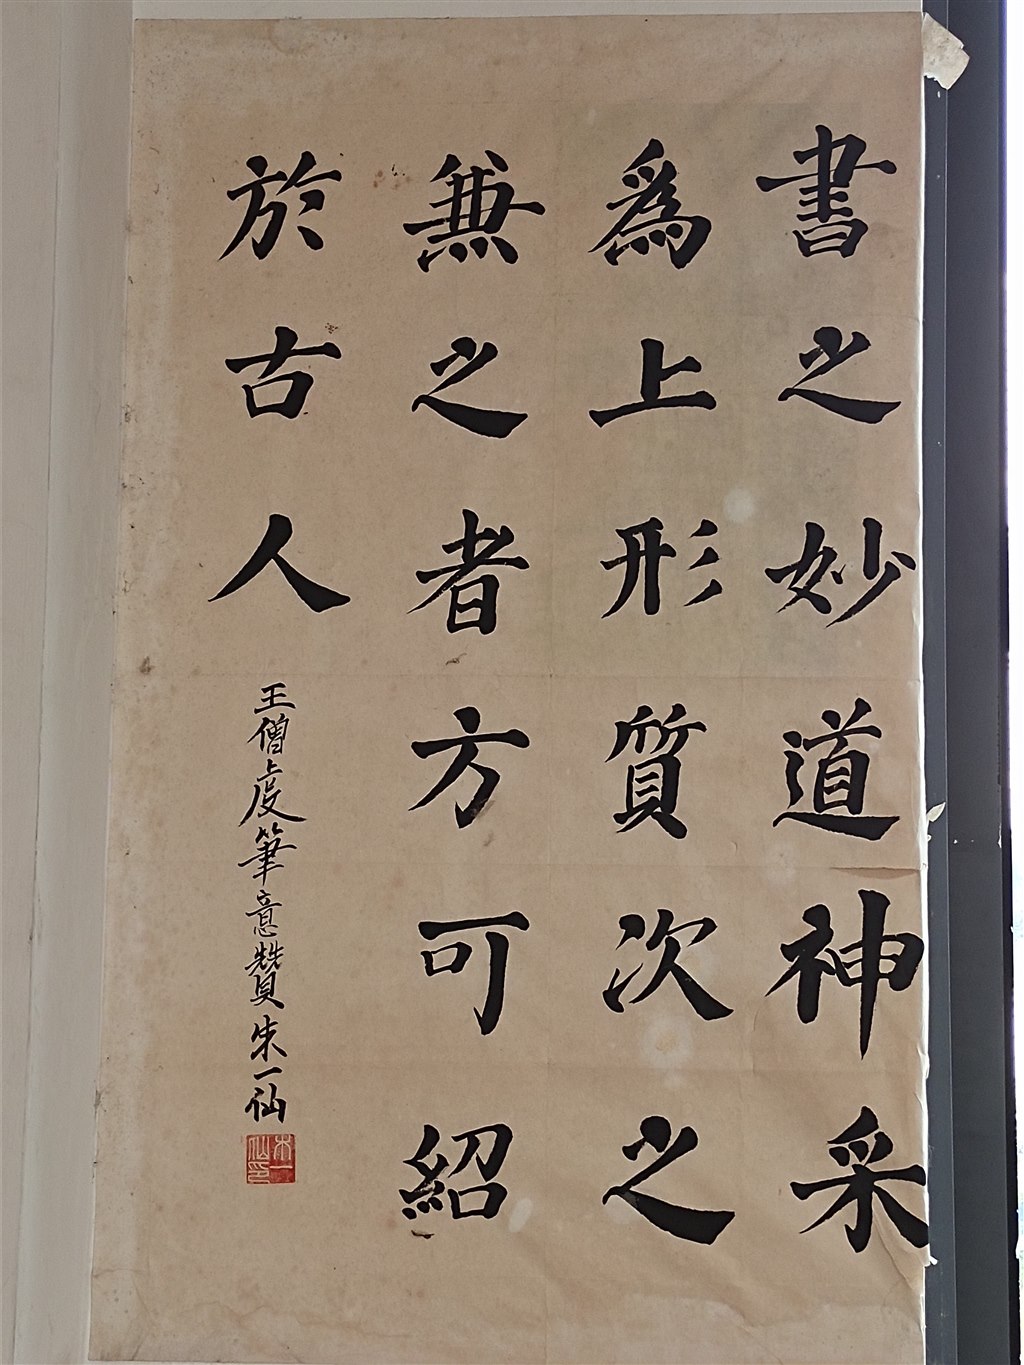 書之妙道神采
爲上形質次之
兼之者方可紹
於古人
王僧虔筆意贊朱一仙
朱一仙印